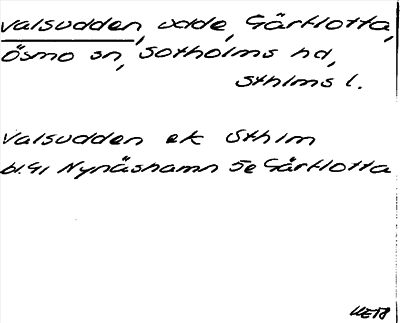 Valsudden, udde, Gårtlotta,
Ösmo sn, Sotholms hd,
Sthlms l.
Valsudden ek Sthlm
bl. 91 Nynäshamn Se Gårtlotta